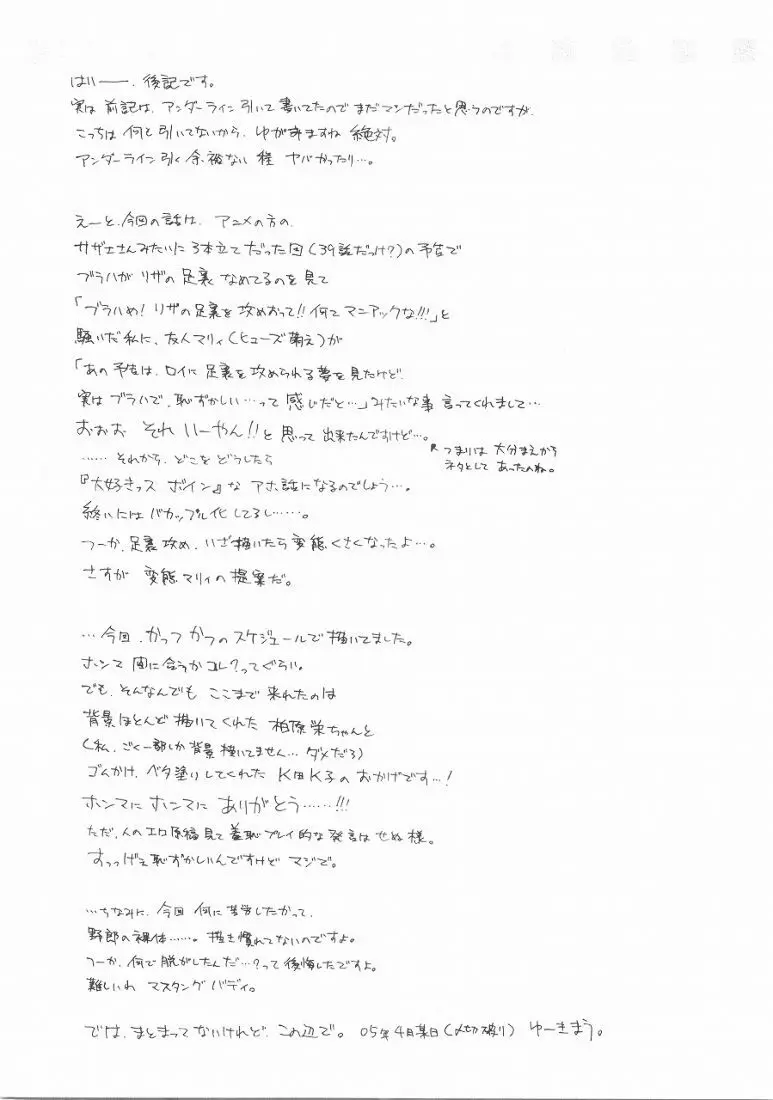 はいー、後記です。
実は前記は、アンダーライン引いて書いてたのでまだマシだったと思うのですが、
こっちは何も引いてないから、ゆがみますね絶対。
アンダーライン引く余裕ない程ヤバかったり…。
えーと、今回の話は、アニメの方の、
サザエさんみたいに3本立てだった回(39話だっけ?)の予告で
ブラハがリザの足裏なめてるのを見て
「ブラハめ!リザの足裏を攻めおって!!何てマニアックな!!!」と
騒いだ私に、友人マリィ(ヒューズ萌え)が
「あの予告は、ロイに足裏を攻められる夢を見たけど、
実はブラハで、恥ずかしい…って感じだと…」みたいな事言ってくれまして…
おおお それいーやん!!と思って出来たんですけど…。
つまりは大分まえから
ネタとしてあったのね。
……それから、どこをどうしたら
『大好きっス ボイン』なアホ話になるのでしょう…。
終いにはバカップル化してるし……。
つーか、足裏攻め、いざ描いたら変態くさくなったよ…。
さすが変態マリィの提案だ。
…今回、かっつかつのスケジュールで描いてました。
ホンマ間に合うかコレ?ってぐらい。
でも、そんなんでもここまで来れたのは
背景ほとんど描いてくれた柏原栄ちゃんと
(私、ごく一部しか背景描いてません…ダメだろ)
ゴムかけ、ベタ塗りしてくれたK田K子のおかげです…!
ホンマにホンマにありがとう……!!!
ただ、人のエロ原稿見て羞恥プレイ的な発言はせぬ様。
すっっげえ恥ずかしいんですけどマジで。
…ちなみに、今回何に苦労したかって、
野郎の裸体……。描き慣れてないのですよ。
つーか、何で脱がしたんだ…?って後悔したですよ。
難しいわ マスタングバディ。
では、まとまってないけれど、この辺で。 05年4月某日(〆切破り) ゆーきまう。